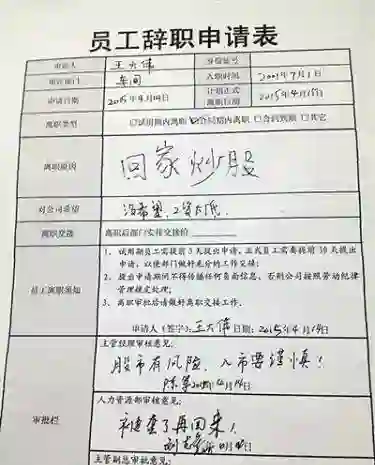 员工辞职申请表
申请人 王大伟 身份证号
申请部门 车间 入职时间 2003年7月1日
申请日期 2015年4月14日 计划正式离职日期 2015年4月15日
离职类型 □试用期内离职 ☑合同期内离职 □合同到期 □其它
离职原因 回家炒股
对公司希望 没希望,工资太低.
离职交接 离职后部门安排交接给
员工离职须知
1、试用期员工需提前3天提出申请,正式员工需要提前30天提出
申请,以便部门做好充分的工作交接;
2、提出申请期间不得传播任何负面信息,否则公司按照劳动纪律
管理规定处理;
3、离职审批后请做好离职交接工作.
申请人(签字):王大伟 日期:2015年4月14日
审批栏
主管经理审核意见:
股市有风险,入市要谨慎!
人力资源部审核意见:
被套了再回来!
主管副总审批意见: